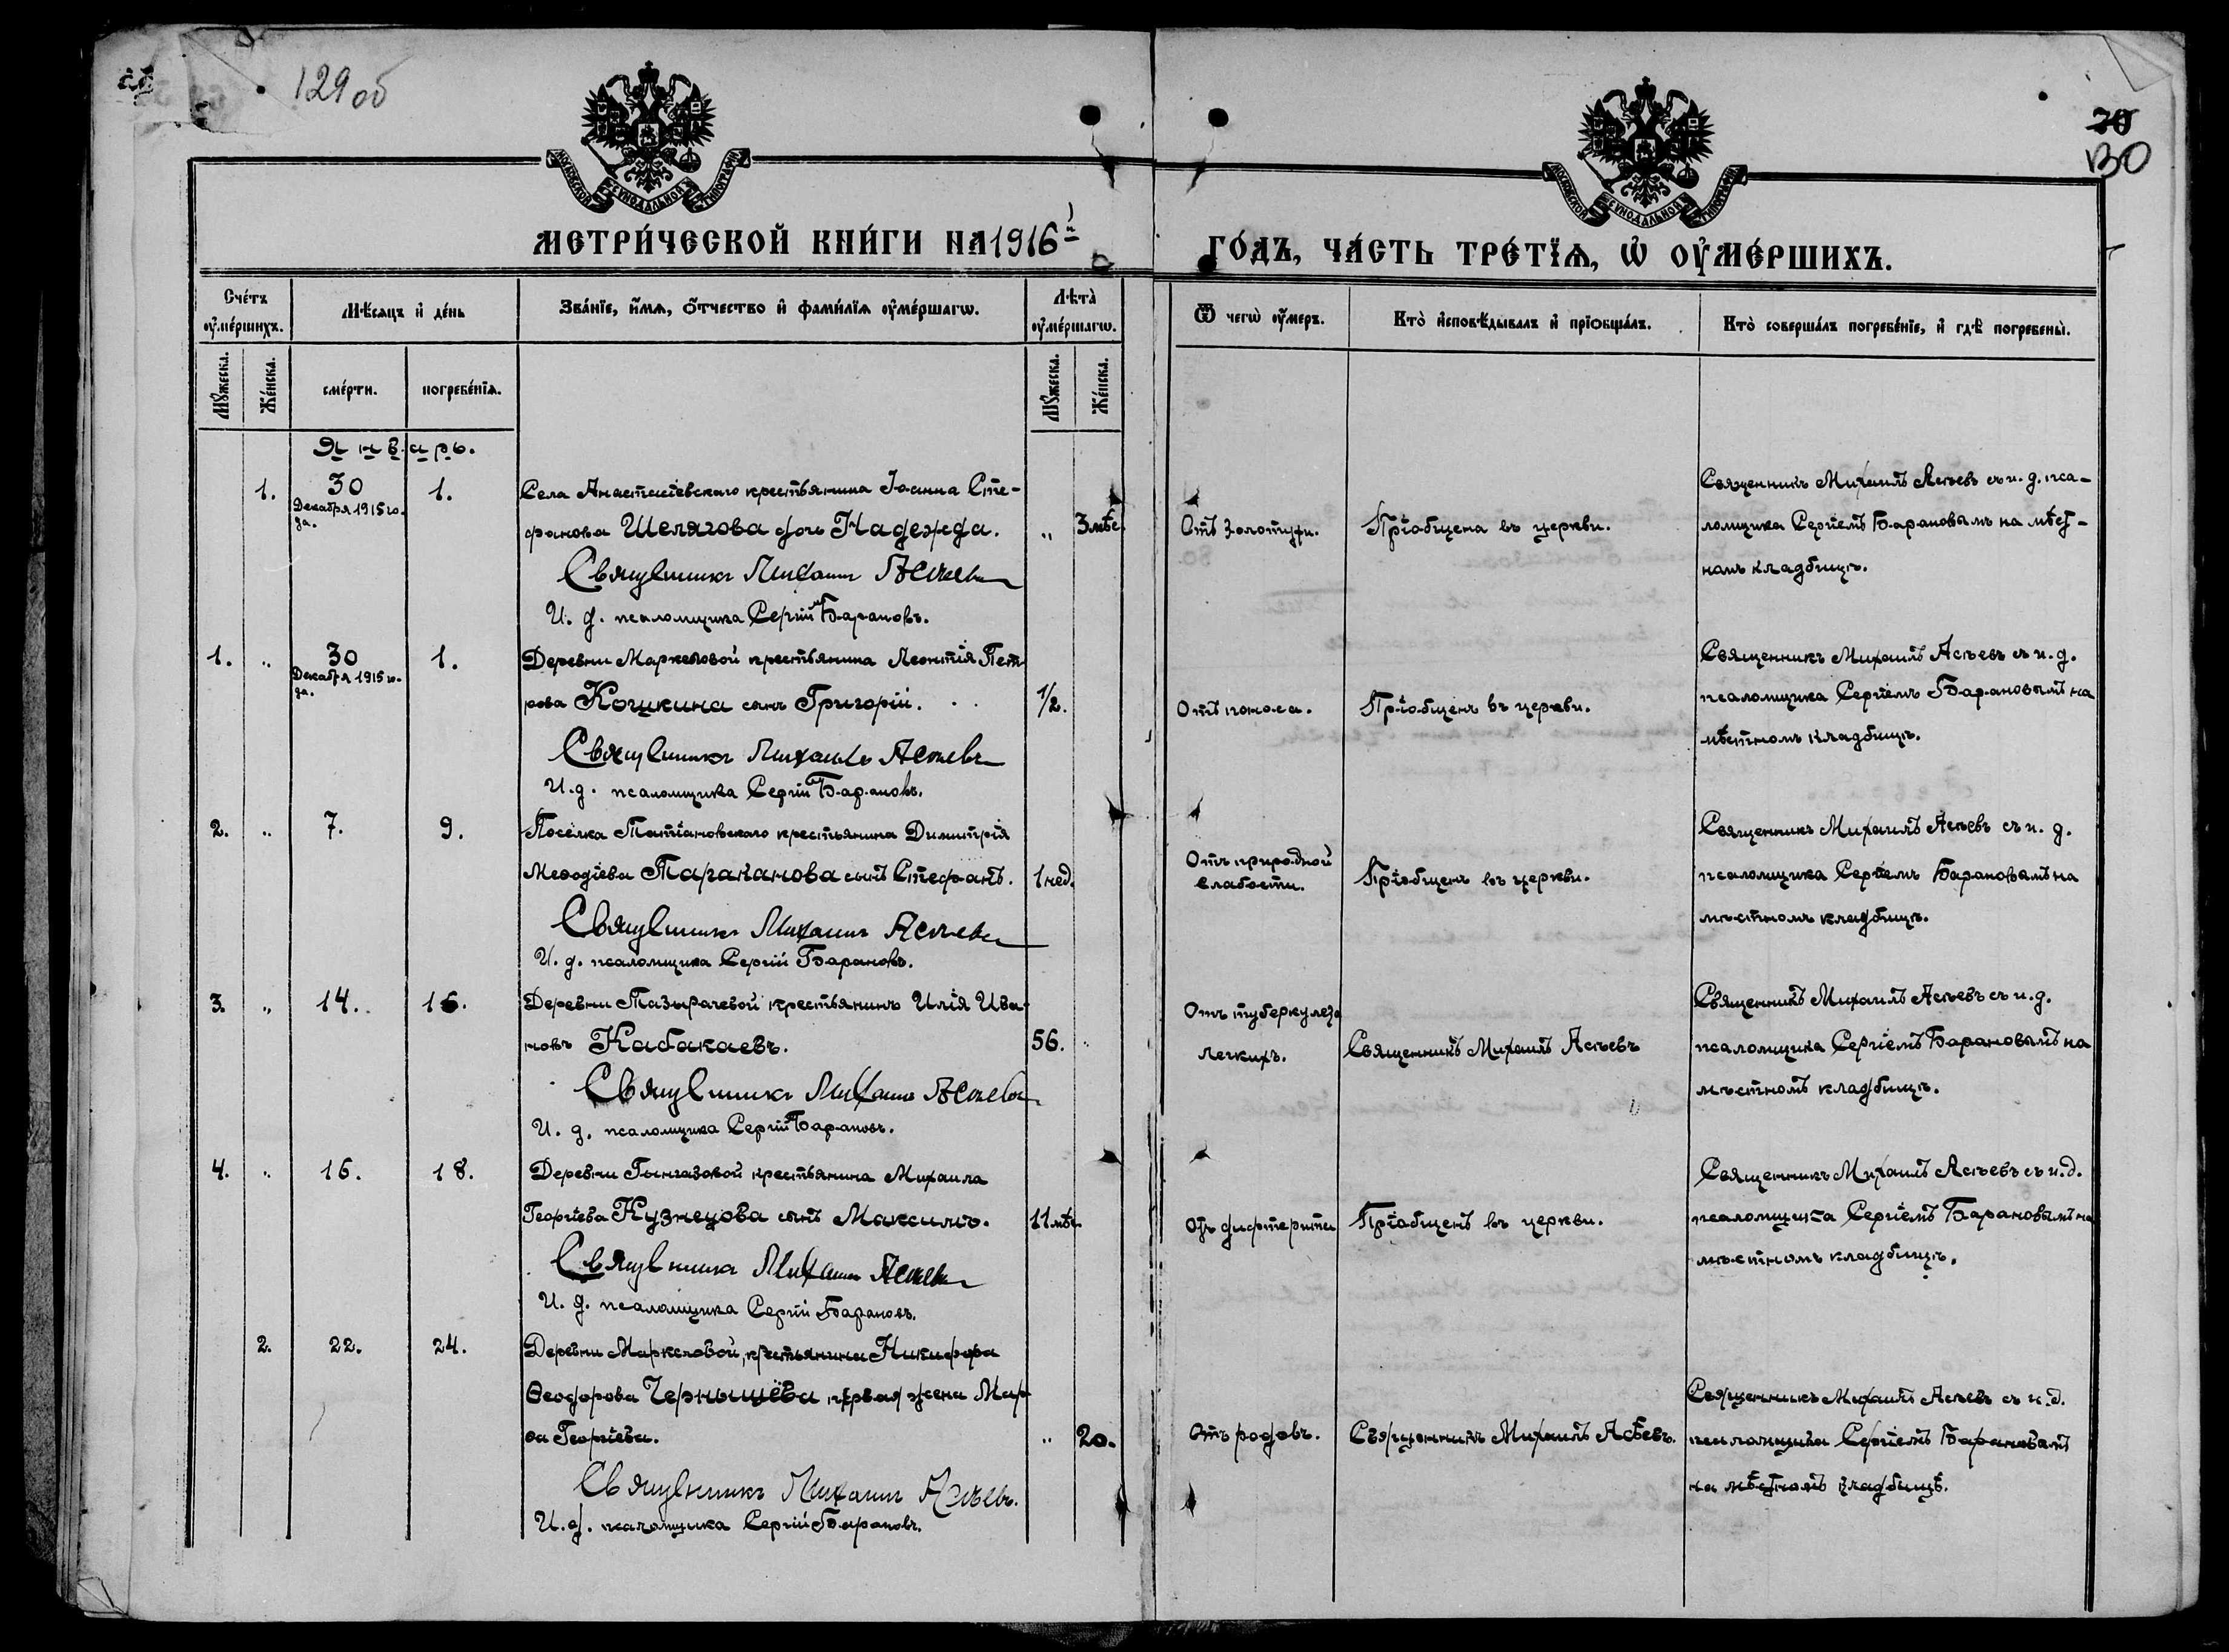 129 об
30
130
МОСКОВСКОЙ СѴНОДАЛЬНОЙ ТИПОГРАФІИ
МОСКОВСКОЙ СѴНОДАЛЬНОЙ ТИПОГРАФІИ
МЕТРИ́ЧЕСКОЙ КНИ́ГИ НА 1916й
ГО́ДЪ, ЧА́СТЬ ТРЕ́ТЇѦ, Ѡ҆ ОУ҆МЕ́РШИХЪ.
Сче́тъ оу҆ме́ршихъ.
Мѣ́сяцъ и҆ де́нь
Зва́нїе, и҆́мѧ, ѻ҆́тчество и҆ фами́лїѧ оу҆ме́ршагѡ.
Лѣта̀ оу҆ме́ршагѡ.
Ѿ чегѡ̀ оу҆́меръ.
Кто̀ и҆сповѣ́дывалъ и҆ прїѡбща́лъ.
Кто̀ соверша́лъ погребе́нїе, и҆ гдѣ̀ погребены̀.
Мꙋ́жеска.
Же́нска.
сме́рти.
погребе́нїѧ.
Мꙋ́жеска.
Же́нска.
Январь.
1.
30
Декабря 1915 го-
да.
1.
Села Анастасіевскаго крестьянина Іоанна Сте-
фанова Шелягова дочь Надежда.
„
3 мѣс.
Священникъ Михаилъ Асѣевъ
И. д. псаломщика Сергій Барановъ.
Отъ золотухи.
Пріобщена въ церкви.
Священникъ Михаилъ Асѣевъ съ и. д. пса-
ломщика Сергіемъ Барановымъ на мѣст-
номъ кладбищѣ.
1.
„
30
Декабря 1915 го-
да.
1.
Деревни Маркеловой крестьянина Леонтія Пет-
рова Кочкина сынъ Григорій.
1/2.
Священникъ Михаилъ Асѣевъ
И. д. псаломщика Сергій Барановъ.
Отъ поноса.
Пріобщенъ въ церкви.
Священникъ Михаилъ Асѣевъ съ и. д.
псаломщика Сергіемъ Барановымъ на
мѣстномъ кладбищѣ.
2.
„
7.
9.
Посёлка Татіановскаго крестьянина Димитрія
Меѳодіева Тараканова сынъ Стефанъ.
1 нед.
Священникъ Михаилъ Асѣевъ
И. д. псаломщика Сергій Барановъ.
Отъ природной
слабости.
Пріобщенъ въ церкви.
Священникъ Михаилъ Асѣевъ съ и. д.
псаломщика Сергіемъ Барановымъ на
мѣстномъ кладбищѣ.
3.
„
14.
16.
Деревни Тазырачевой крестьянинъ Илія Ива-
новъ Кабакаевъ.
56.
„
Священникъ Михаилъ Асѣевъ
И. д. псаломщика Сергій Барановъ.
Отъ туберкулеза
легкихъ.
Священникъ Михаилъ Асѣевъ
Священникъ Михаилъ Асѣевъ съ и. д.
псаломщика Сергіемъ Барановымъ на
мѣстномъ кладбищѣ.
4.
„
16.
18.
Деревни Гынгазовой крестьянина Михаила
Георгіева Кузнецова сынъ Максимъ.
11 мѣс.
Священникъ Михаилъ Асѣевъ
И. д. псаломщика Сергій Барановъ.
Отъ дифтерита
Пріобщенъ въ церкви.
Священникъ Михаилъ Асѣевъ съ и. д.
псаломщика Сергіемъ Барановымъ на
мѣстномъ кладбищѣ.
2.
22.
24.
Деревни Маркеловой, крестьянина Никифора
Ѳеодорова Чернышёва первая жена Мар-
ѳа Георгіева.
„
20.
Священникъ Михаилъ Асѣевъ.
И. д. псаломщика Сергій Барановъ.
Отъ родовъ.
Священникъ Михаилъ Асѣевъ.
Священникъ Михаилъ Асѣевъ съ и. д.
псаломщика Сергіемъ Барановымъ
на мѣстномъ кладбищѣ.